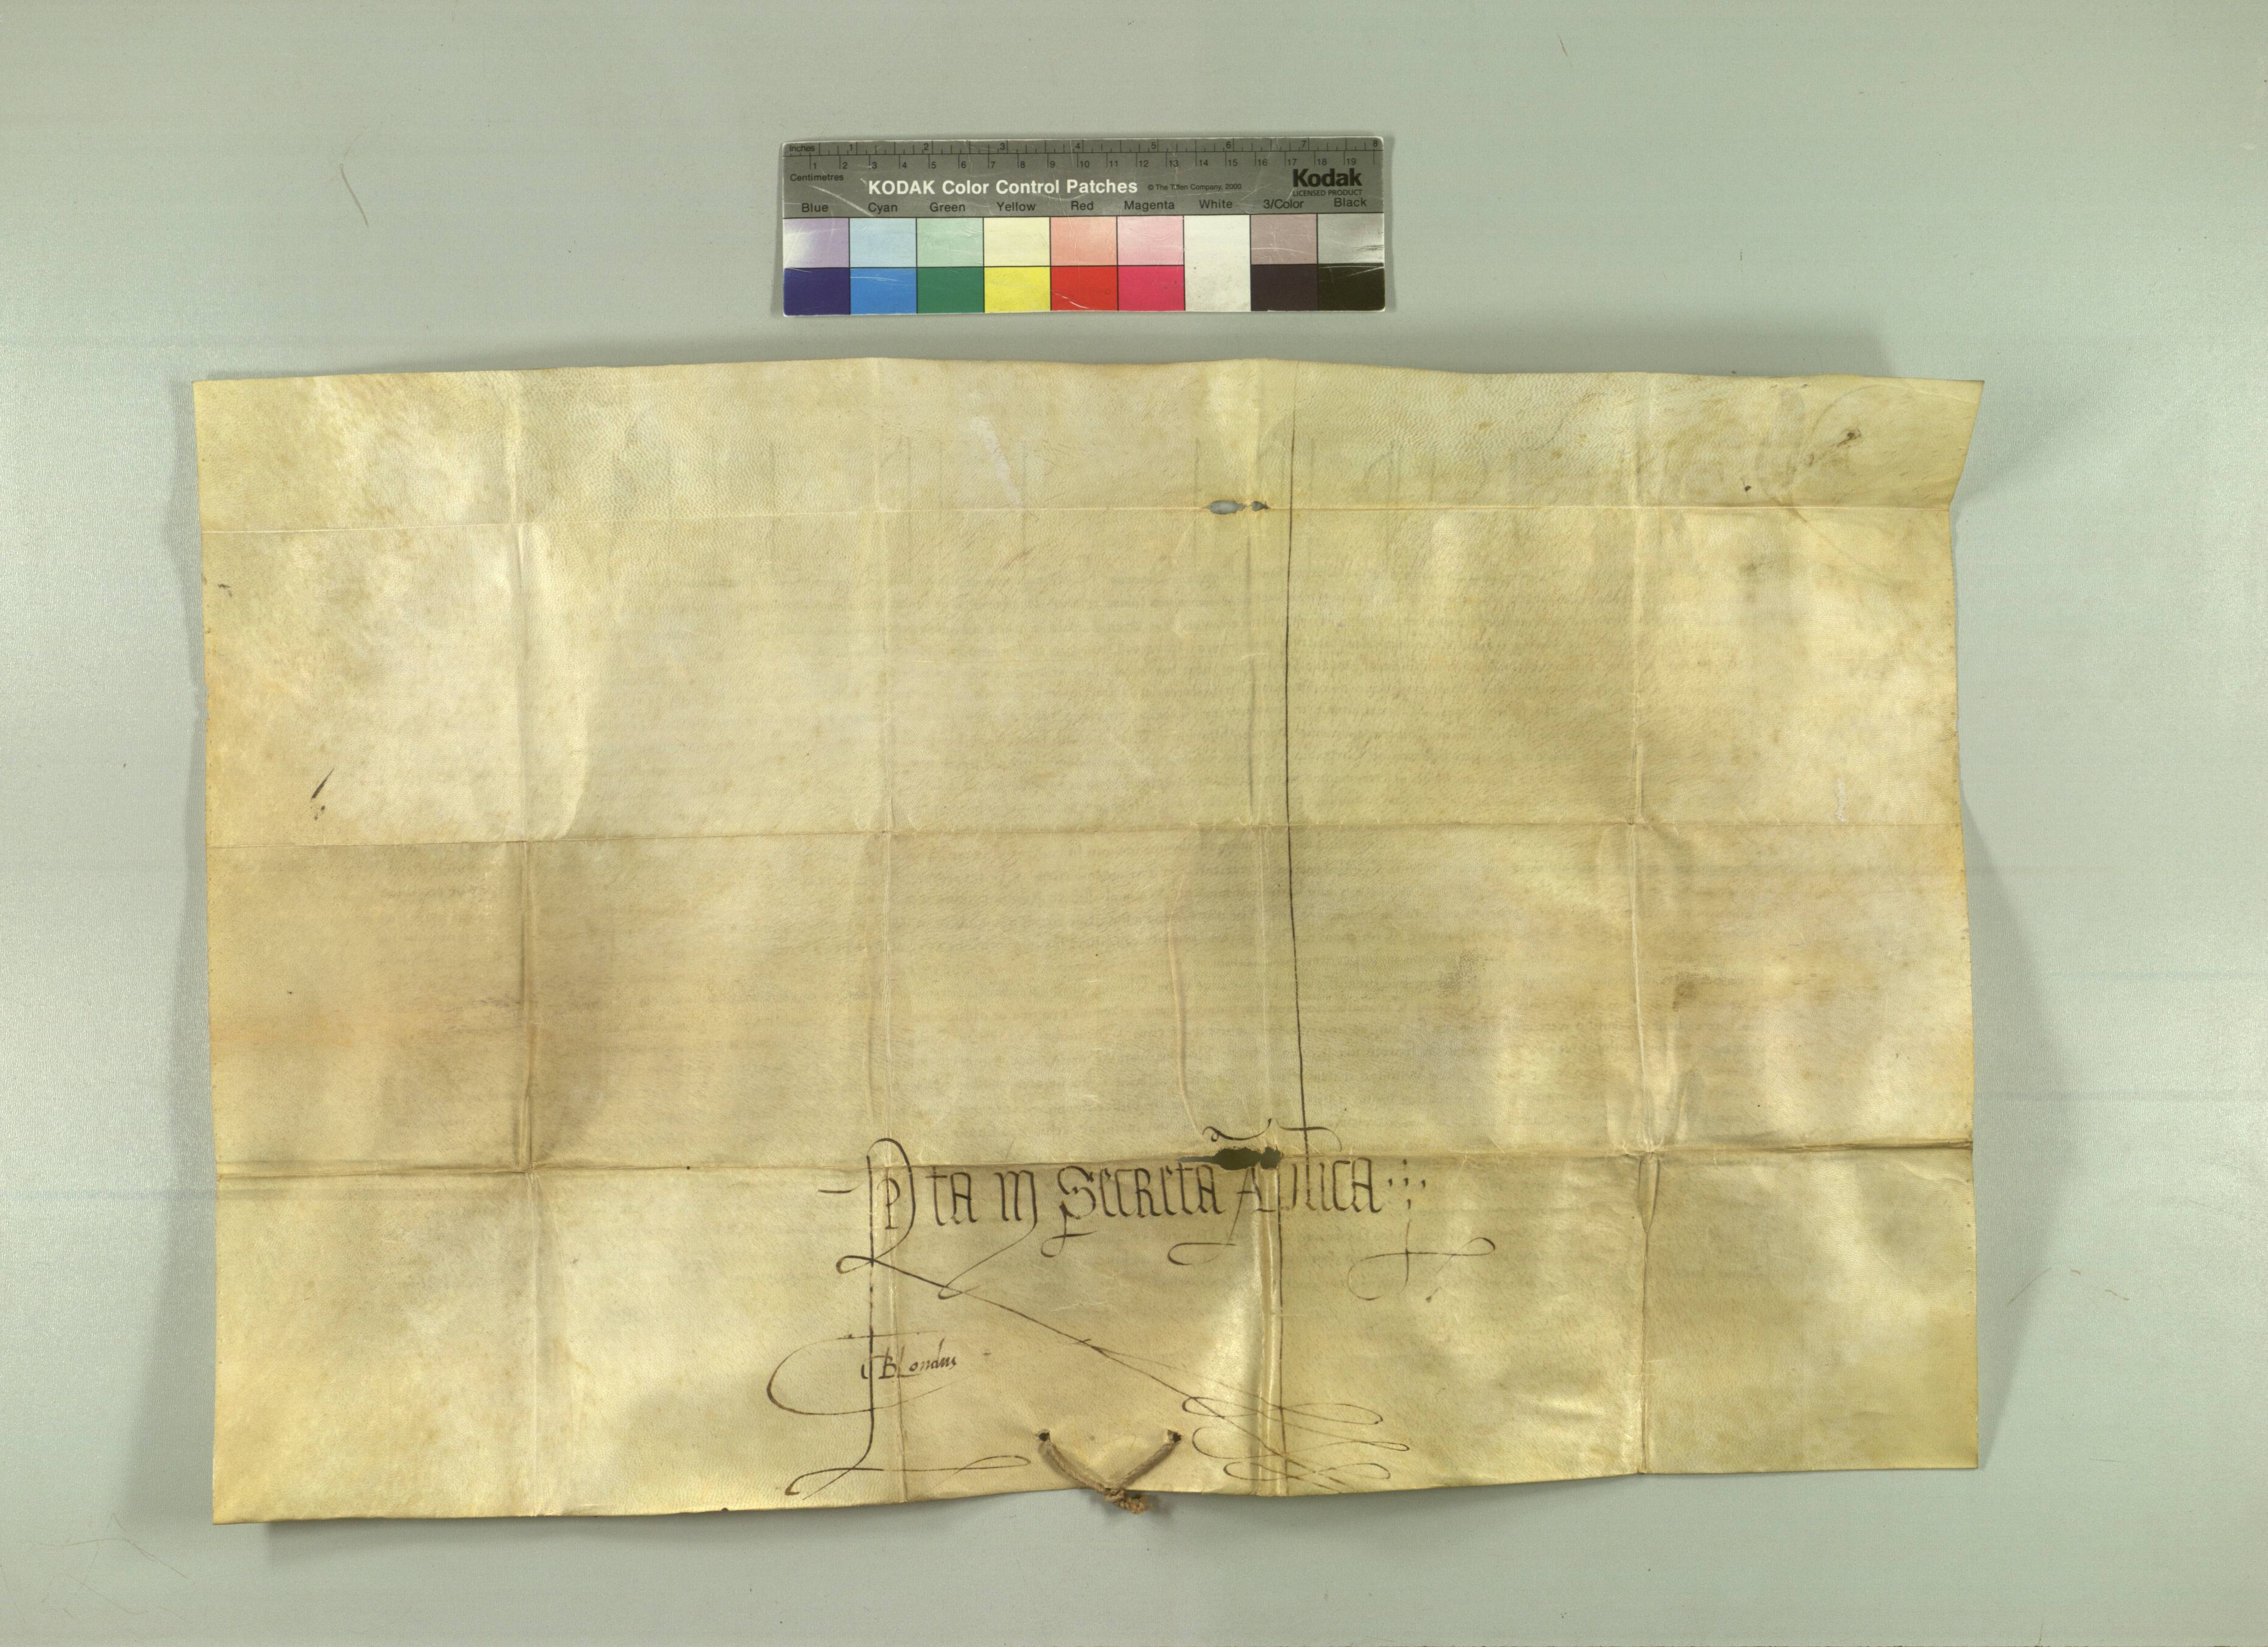 Inches 1 2 3 4 5 6 7 8
1 2 3 4 5 6 7 8 9 10 11 12 13 14 15 16 17 18 19
Centimetres
KODAK Color Control Patches © The Tiffen Company, 2000 Kodak
LICENSED PRODUCT
Blue Cyan Green Yellow Red Magenta White 3/Color Black
Rta in Secreta Aplica
Blondus